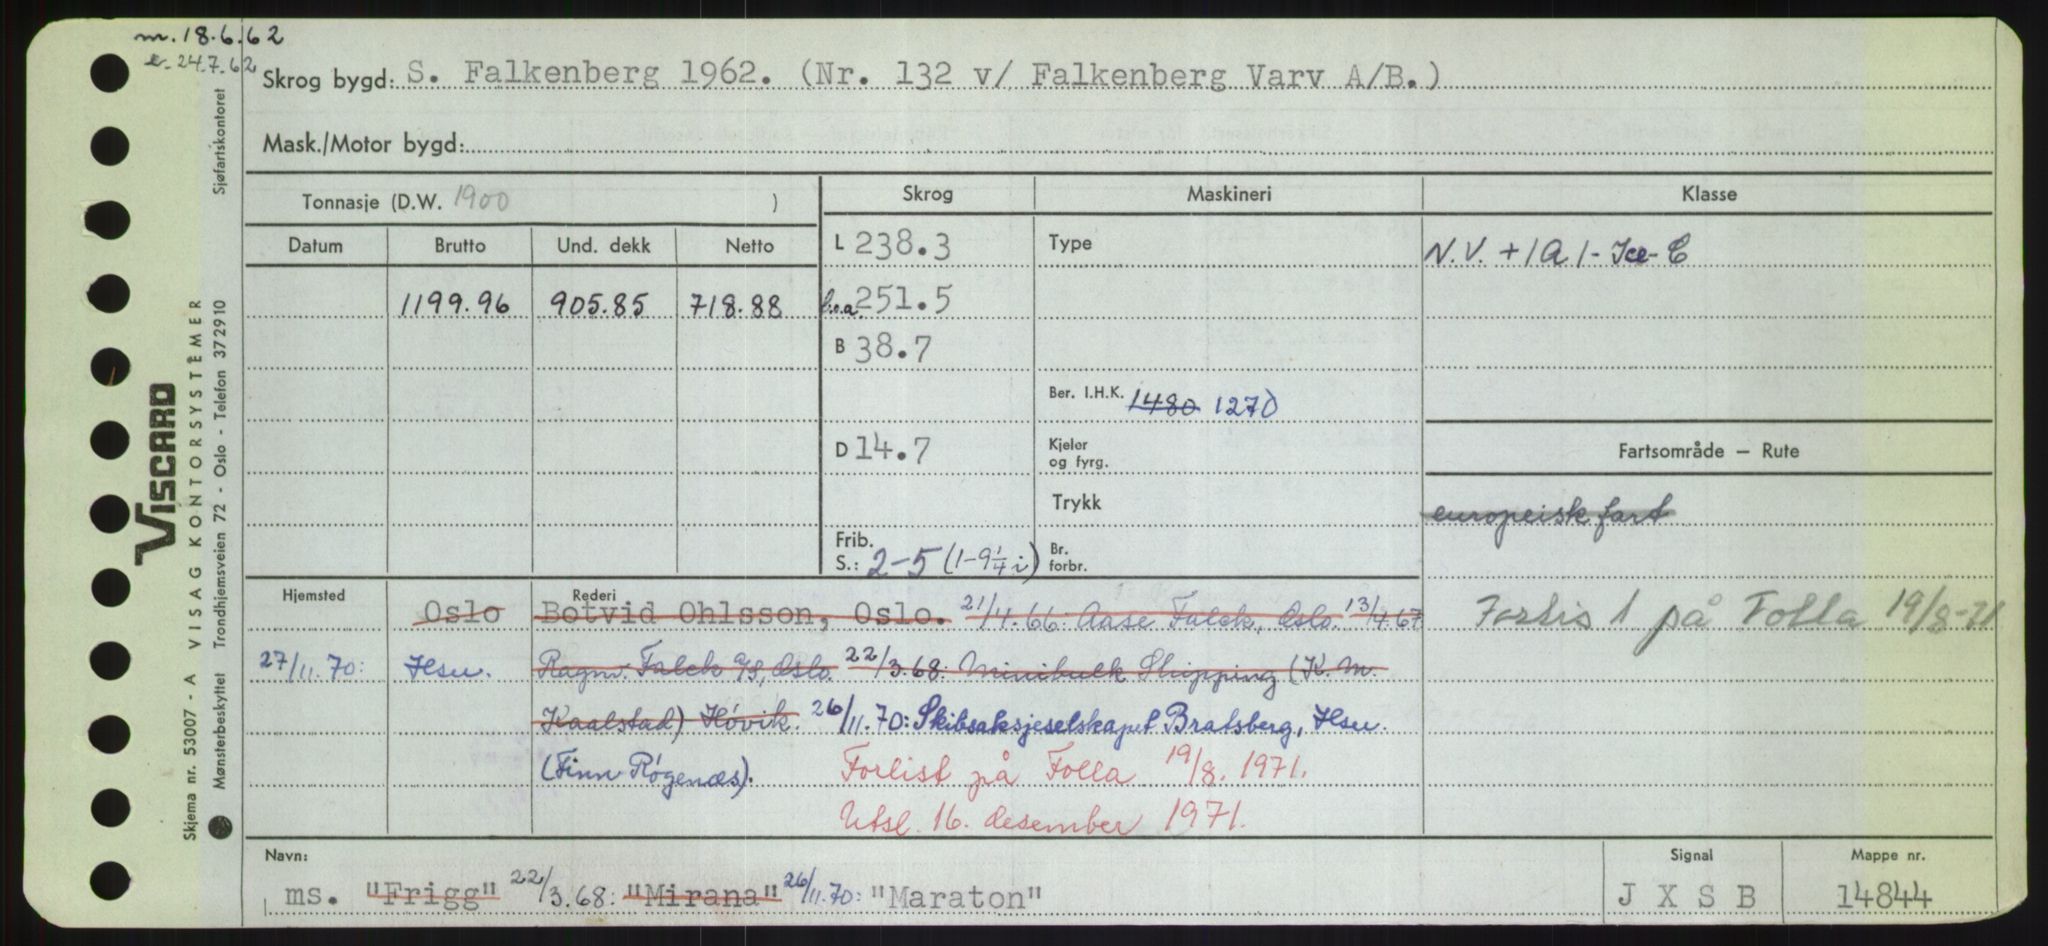 m. 18.6.62
e. 24.7.62
Skrog bygd: S. Falkenberg 1962. (Nr. 132 v/ Falkenberg Varv A/B.)
Mask./Motor bygd:
Tonnasje (D.W. 1900 )
Skrog Maskineri Klasse
Datum Brutto Und. dekk Netto
L 238.3 Type N.V. +1A1-Ice-C
1199.96 905.85 718.88 l.o.a. 251.5
B 38.7
Ber. I.H.K. 1480 1270
D 14.7 Kjeler og fyrg. Fartsområde — Rute
Trykk europeisk fart
Frib. S.: 2-5 (1-9¼ i) Br. forbr.
Hjemsted Rederi
Oslo Botvid Ohlsson, Oslo. 21/4.66: Aase Falck, Oslo. 13/4.67 Forlis 1 på Folla 19/8-71
27/11.70: Hsu. Ragnv. Falck A/S, Oslo. 22/3.68: Minibulk Shipping (K. M.
Kaalstad) Høvik. 26/11.70: Skibsaksjeselskapet Bratsberg, Hsu.
(Finn Røgenæs). Forlist på Folla 19/8. 1971.
Utsl. 16. desember 1971.
Navn: Signal Mappe nr.
ms. "Frigg" 22/3.68: "Mirana" 26/11.70: "Maraton" J X S B 14844
VISCARD
VISAG KONTORSYSTEMER
Skjema nr. 53007 - A
Sjøfartskontoret
Mønsterbeskyttet Trondhjemsveien 72 - Oslo - Telefon 372910